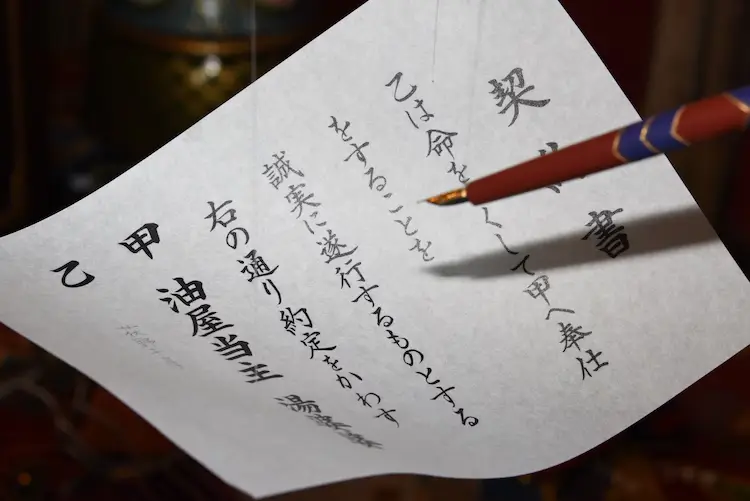 契 書
乙は命を くして甲へ奉仕
をすることを
誠実に遂行するものとする
右の通り約定をかわす
甲 油屋当主 湯婆婆
乙